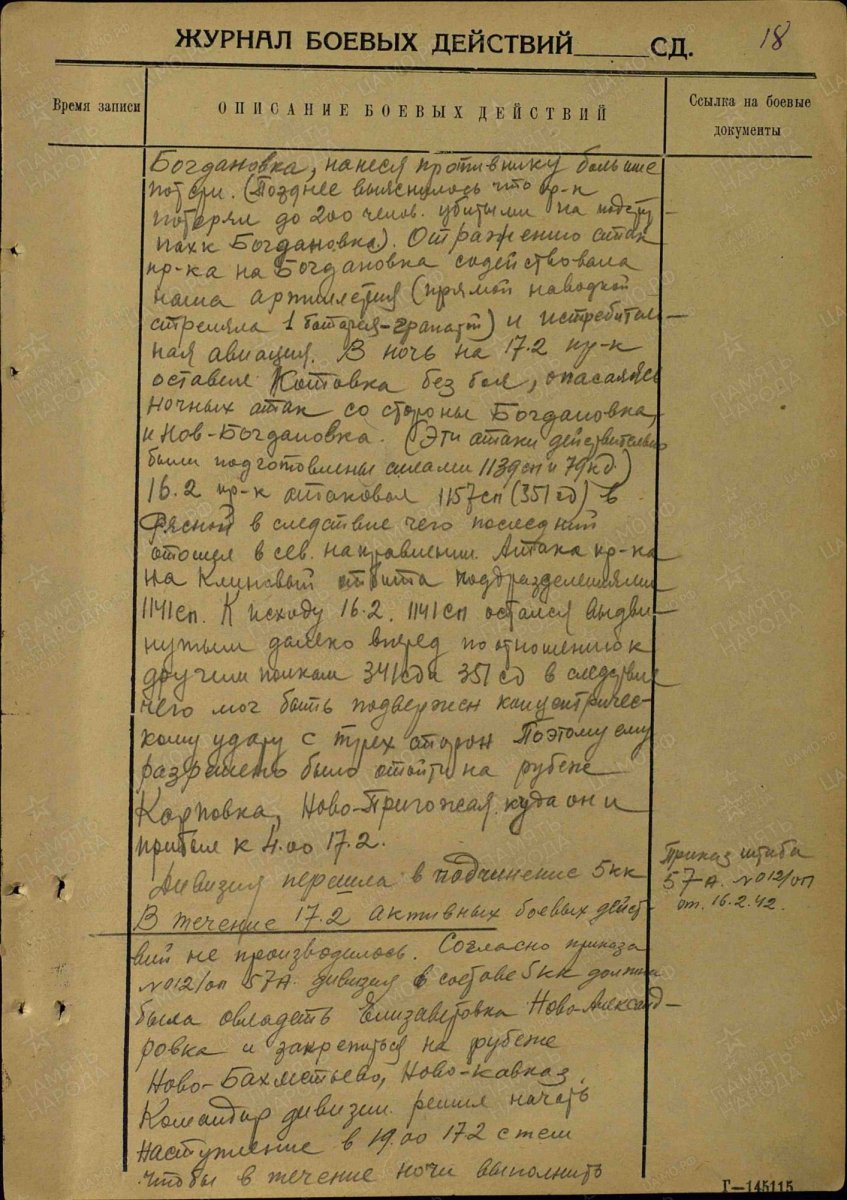 18
ЖУРНАЛ БОЕВЫХ ДЕЙСТВИЙ_____СД.
Время записи
ОПИСАНИЕ БОЕВЫХ ДЕЙСТВИЙ
Ссылка на боевые
документы
Богдановка, нанеся противнику большие
потери. (Позднее выяснилось что пр-к
потерял до 200 челов. убитыми на подсту-
пах к Богдановка). Отражению атак
пр-ка на Богдановка содействовала
наша артиллерия (прямой наводкой
стреляла 1 батарея-гранатой) и истребитель-
ная авиация. В ночь на 17.2 пр-к
оставил Котовка без боя, опасаясь
ночных атак со стороны Богдановка,
и Нов-Богдановка. (Эти атаки действительно
были подготовлены силами 1139сп и 79кд)
16.2 пр-к атаковал 1157сп (351сд) в
Рясной в следствие чего последний
отошел в сев. направлении. Атака пр-ка
на Клиновый отбита подразделениями
1141сп. К исходу 16.2. 1141сп остался выдви
нутым далеко вперед по отношению к
другим полкам 341сд и 351сд в следствие
чего мог быть подвержен концентричес-
кому удару с трех сторон Поэтому ему
разрешено было отойти на рубеж
Карповка, Ново-Пригожая куда он и
прибыл к 4.00 17.2.
Дивизия перешла в подчинение 5кк
Приказ штаба
57А. №012/оп
от. 16.2.42.
В течение 17.2 активных боевых дейст-
вий не производилось. Согласно приказа
№012/оп 57А. дивизия в составе 5кк должна
была овладеть Елизаветовка Ново-Александ-
ровка и закрепиться на рубеже
Ново-Бахметьево, Ново-Кавказ.
Командир дивизии решил начать
наступление в 19.00 17.2 с тем
чтобы в течение ночи выполнить
Г—145115